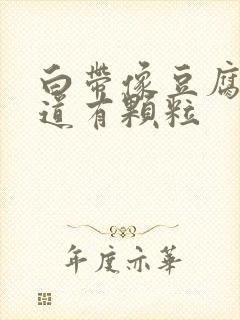 白帶像豆腐
道有顆粒
年度亦華